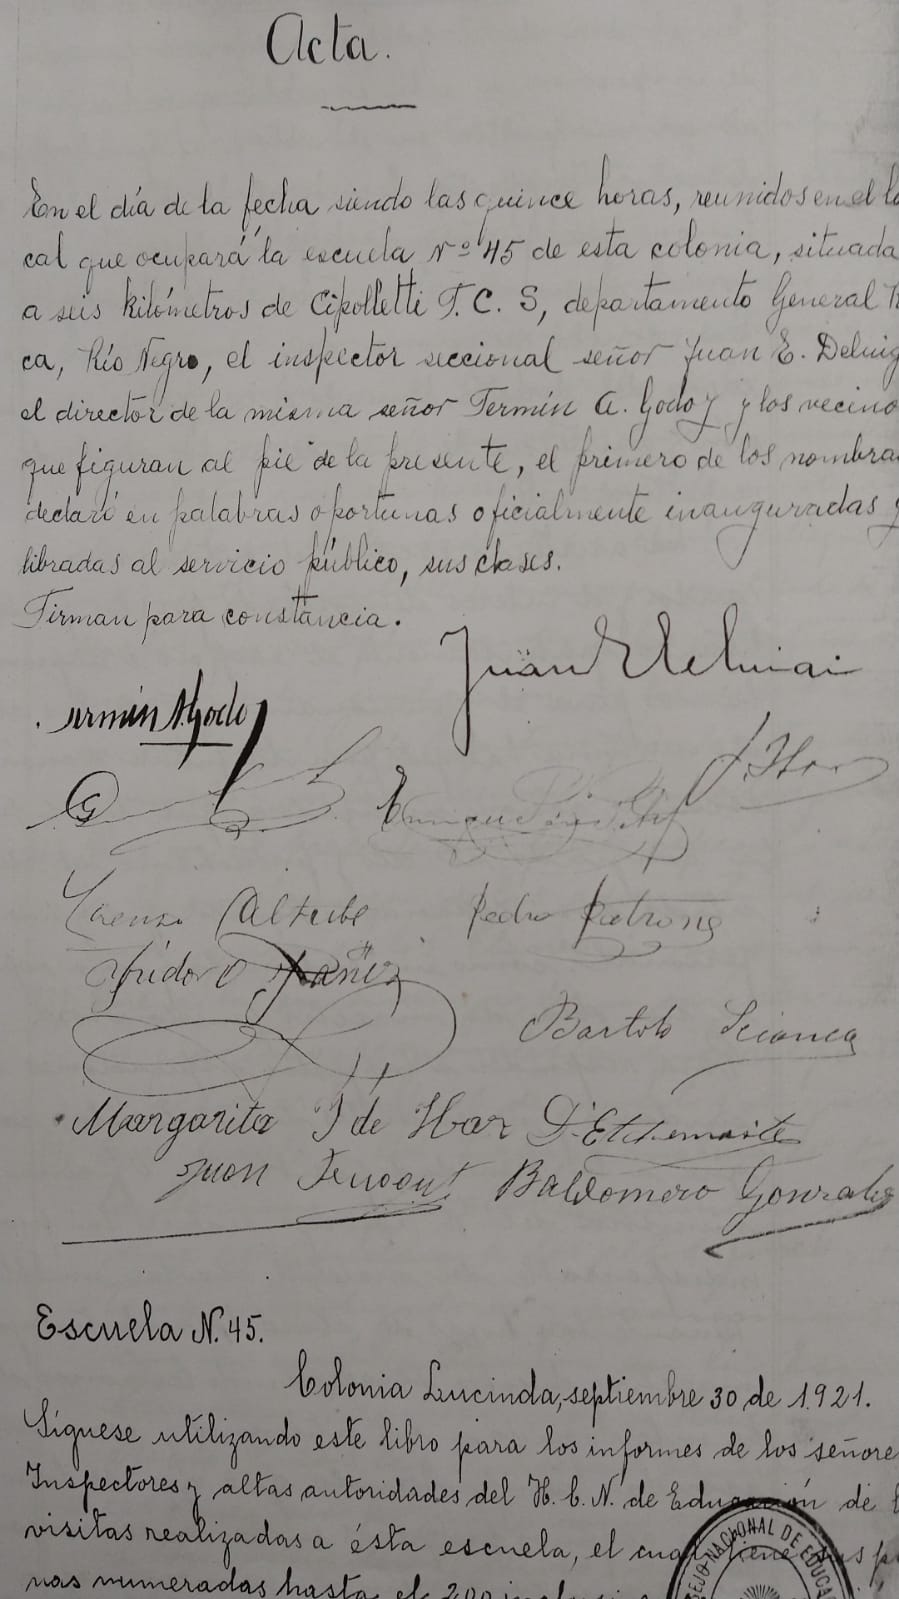 Acta.
En el día de la fecha siendo las quince horas, reunidos en el lo
cal que ocupará la escuela Nº 45 de esta colonia, situada
a seis kilómetros de Cipolletti F. C. S, departamento General R
ca, Río Negro, el inspector seccional señor Juan E.
el director de la misma señor Fermín A. Godoy y los vecino
que figuran al pie de la presente, el primero de los nombra
declaró en palabras oportunas oficialmente inauguradas y
libradas al servicio público, sus clases.
Firman para constancia.
Juan E
Fermín A. Godoy
Enrique
Pedro
Isidoro Yañez
Bartolo
Margarita de
Juan
Baldomero Gonzalez
Escuela N. 45.
Colonia Lucinda, septiembre 30 de 1.921.
Síguese utilizando este libro para los informes de los señore
Inspectores y altas autoridades del H. C. N. de Educación de
visitas realizadas a ésta escuela, el cual tiene sus
nas numeradas hasta el 200
SEJO NACIONAL DE EDUCA